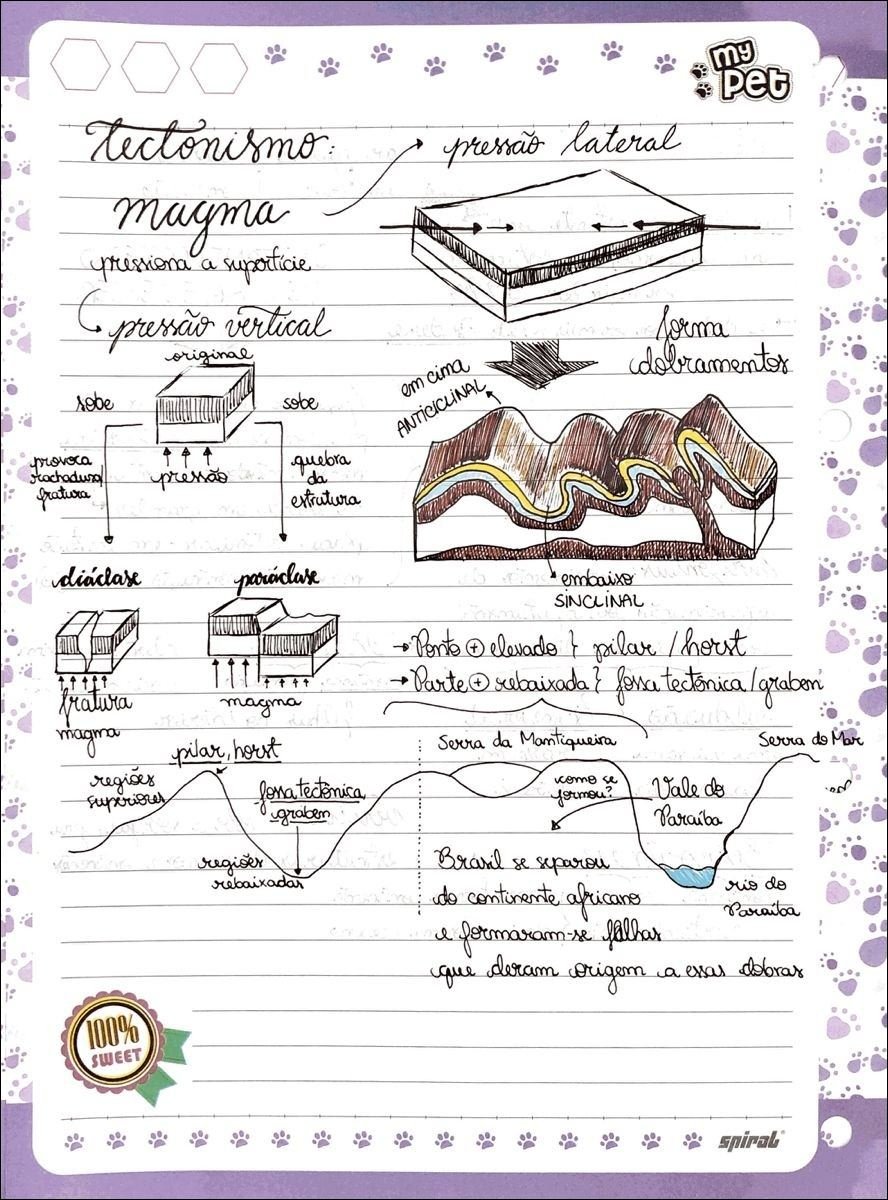 my
pet
tectonismo:
magma
pressiona a superfície
pressão lateral
pressão vertical
original
sobe
sobe
pressão
provoca
rachadura/
fratura
quebra
da
estrutura
diáclase
paráclase
fratura
magma
magma
forma
dobramentos
em cima
ANTICICLINAL
embaixo
SINCLINAL
→ Ponto ⊕ elevado } pilar / horst
→ Parte ⊕ rebaixada } fossa tectônica / graben
pilar, horst
regiões
superiores
fossa tectônica
graben
regiões
rebaixadas
Serra da Mantiqueira
Serra do Mar
como se
formou?
Vale do
Paraíba
rio do
Paraíba
Brasil se separou
do continente africano
e formaram-se falhas
que deram origem a essas dobras
100%
SWEET
spiral